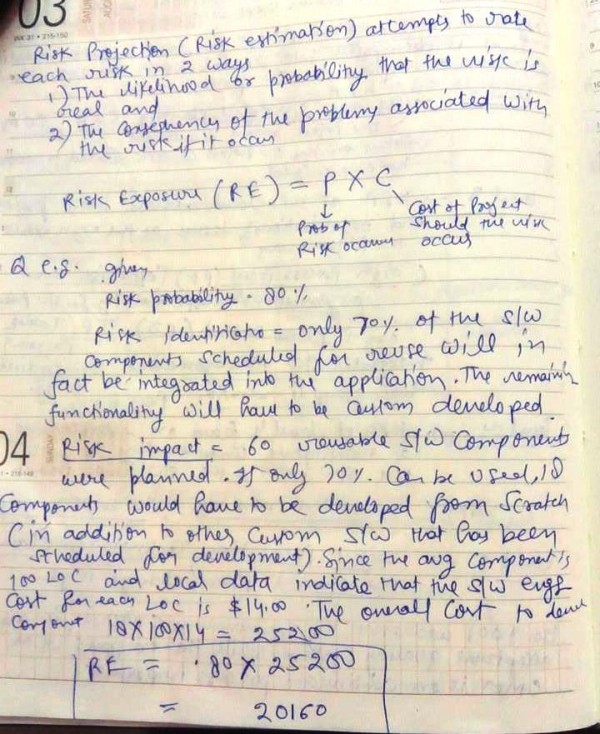 03
WK 31 • 215-150
Risk Projection (Risk estimation) attempts to rate
each risk in 2 ways
1) The likelihood or probability that the risk is
real and
2) The consequences of the problems associated with
the risk if it occur
Risk Exposure (RE) = P X C
↓ Prob of Risk occurence
Cost of Project should the risk occur
Q e.g. given
Risk probability = 80%
Risk identificatio = only 70% of the S/W
components scheduled for reuse will in
fact be integrated into the application. The remainin
functionality will have to be custom developed.
04
Risk impact = 60 reusable S/W Components
were planned. If only 70% can be used, 18
components would have to be developed from scratch
(in addition to other custom S/W that has been
scheduled for development). Since the avg component is
100 LOC and local data indicate that the S/W engg
cost for each LOC is $14.00 The overall cost to
18X100X14 = 25200
RE = .80 X 25200
= 20160